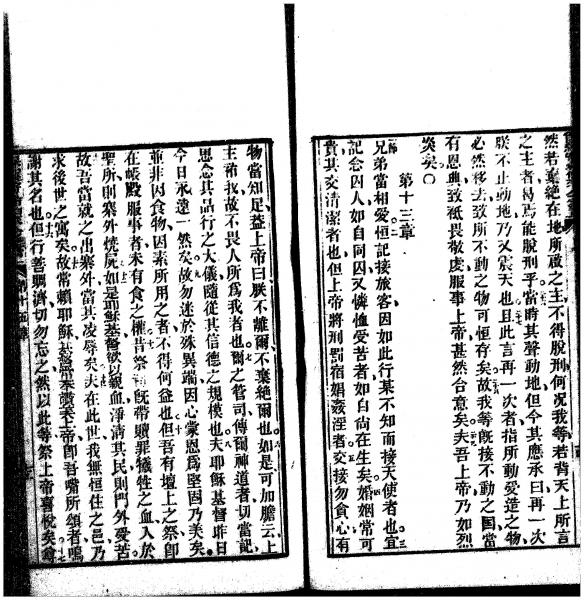 然若棄絕在地所啟之主不得脫刑何况我等若背天上所言
之主者曷焉能脫刑乎當時其聲動地但今其應承曰再一次
朕不止動地乃又震天也且此言再一次者指所動受造之物
必然移去致所不動之物可恒存矣故我等旣接不動之國當
有恩典致祗畏敬虔服事上帝甚然合意矣夫吾上帝乃如烈
炎矣〇
第十三章
兄弟當相愛恒記接旅客因如此行某不知而接天使者也宜
記念囚人如自同囚又憐恤受苦者如自尚在生矣婚姻常可
貴其交清潔者也但上帝將刑罰宿娼姦淫者交接勿貪心有
物當知足益上帝曰朕不離爾不棄絕爾也如是可加膽云上
主祐我故不畏人所爲我者也爾之管司傳爾神道者切當記
思念其品行之大儀隨從其信德之規模也夫耶穌基督昨日
今日永遠一然矣故勿迷於殊異端因心蒙恩爲堅固乃美矣
並非因食物因素所用之者不得何益也但吾有壇上之祭卽
在帳殿服事者未有食之權昔祭旣帶贖罪犧牲之血入於
聖所則寨外燒屍如是耶穌基督欲以親血淨清其民則門外受苦
故吾當就之出寨外當其凌辱矣夫在此世我無恒住之邑乃
求後世之寓矣故常賴耶穌基督讚天上帝卽吾嘴所頌者鳴
謝其名也但行善賙濟切勿忘之然以此等祭上帝喜悅矣爾